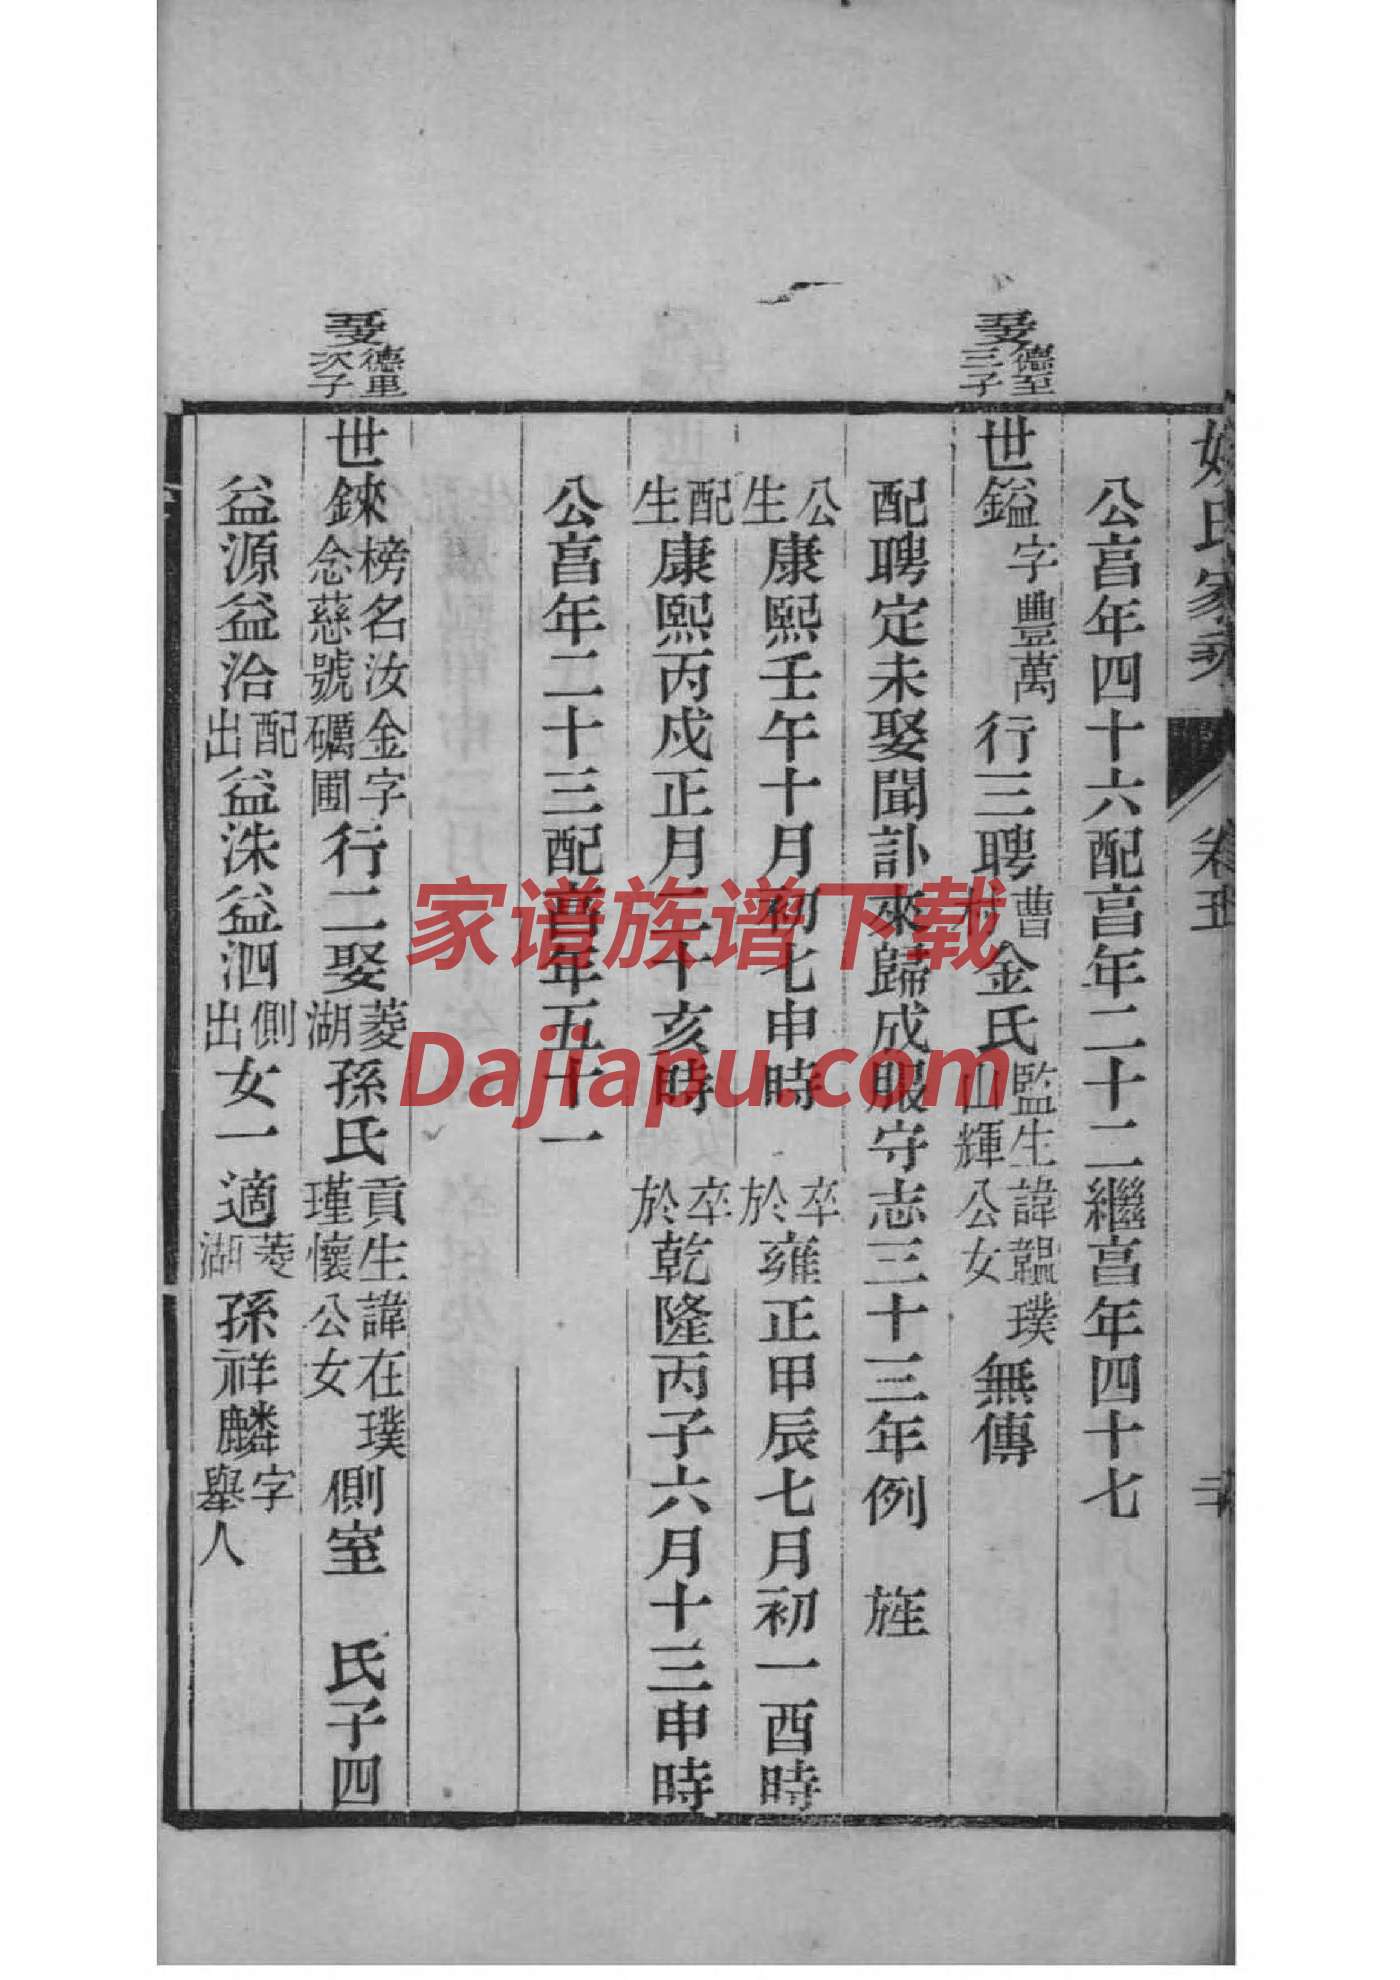 姚氏家乘 卷五
公亯年四十六配亯年二十二繼亯年四十七
德至三子
世鎰字豐萬行三聘曹村金氏監生諱韞璞山輝公女無傳
配聘定未娶聞訃來歸成服守志三十三年例 旌
公生康熙壬午十月初七申時 卒於雍正甲辰七月初一酉時
配生康熙丙戌正月二十亥時 卒於乾隆丙子六月十三申時
公亯年二十三配亯年五十一
德里次子
世錸榜名汝金字念慈號礪圃行二娶菱湖孫氏貢生諱在璞瑾懷公女側室 氏子四
益源益治配出益洙益泗側出女一適菱湖孫祥麟字舉人
家谱族谱下载
Dajiapu.com